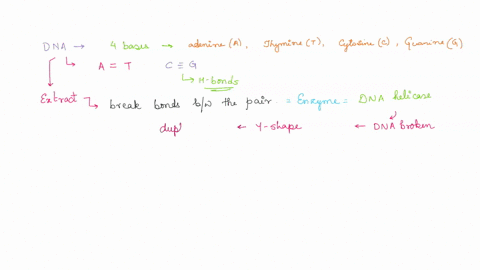 DNA → 4 bases → adenine (A), Thymine (T), Cytosine (C), Guanine (G)
↳ A = T C ≡ G
↳ H-bonds
Extract ↳ break bonds b/w the pair = Enzyme = DNA helicase
dupl ← Y-shape ← DNA broken